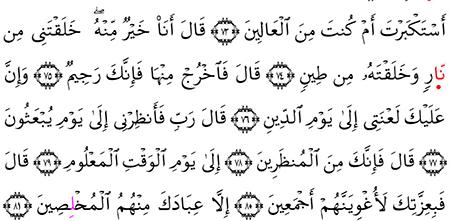 أَسْتَكْبَرْتَ أَمْ كُنتَ مِنَ ٱلْعَالِينَ ﴿٧٣﴾ قَالَ أَنَا۠ خَيْرٌ مِّنْهُ ۖ خَلَقْتَنِى مِن
نَّارٍ وَخَلَقْتَهُۥ مِن طِينٍ ﴿٧٤﴾ قَالَ فَٱخْرُجْ مِنْهَا فَإِنَّكَ رَجِيمٌ ﴿٧٥﴾ وَإِنَّ
عَلَيْكَ لَعْنَتِى إِلَىٰ يَوْمِ ٱلدِّينِ ﴿٧٦﴾ قَالَ رَبِّ فَأَنظِرْنِى إِلَىٰ يَوْمِ يُبْعَثُونَ
﴿٧٧﴾ قَالَ فَإِنَّكَ مِنَ ٱلْمُنظَرِينَ ﴿٧٨﴾ إِلَىٰ يَوْمِ ٱلْوَقْتِ ٱلْمَعْلُومِ ﴿٧٩﴾ قَالَ
فَبِعِزَّتِكَ لَأُغْوِيَنَّهُمُ أَجْمَعِينَ ﴿٨٠﴾ إِلَّا عِبَادَكَ مِنْهُمُ ٱلْمُخْلِصِينَ ﴿٨١﴾